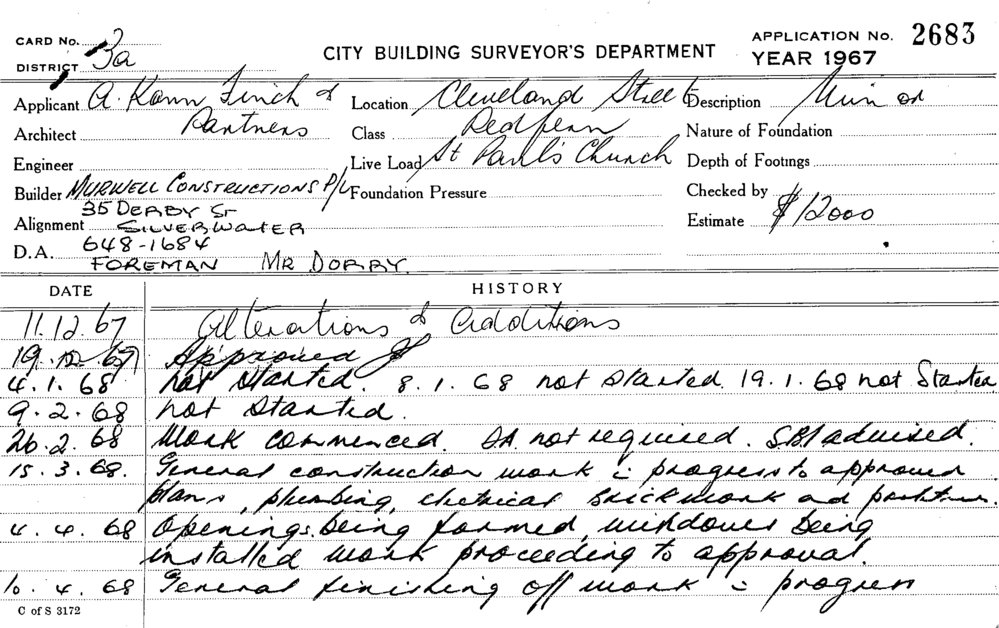 CARD No.
DISTRICT 3a
CITY BUILDING SURVEYOR'S DEPARTMENT
APPLICATION No. 2683
YEAR 1967
Applicant A. Kann Finch &
Architect Partners
Engineer
Builder MURWELL CONSTRUCTIONS P/L
35 DERBY ST
Alignment SILVERWATER
D.A. 648-1684
FOREMAN MR DORBY.
Location Cleveland Street
Class Redfern
Live Load St Paul's Church
Foundation Pressure
Description Minor
Nature of Foundation
Depth of Footings
Checked by
Estimate $12000
DATE HISTORY
11.12.67 Alterations & additions
19.12.67 Approved
4.1.68 not started. 8.1.68 not started. 19.1.68 not Started
9.2.68 not started.
26.2.68 Work commenced. SA not required. SBI advised.
15.3.68. General construction work in progress to approved
plans, plumbing, electrical brickwork and partitions.
4.4.68 Openings being formed, windows being
installed work proceeding to approval.
10.4.68 General finishing off work in progress
C of S 3172